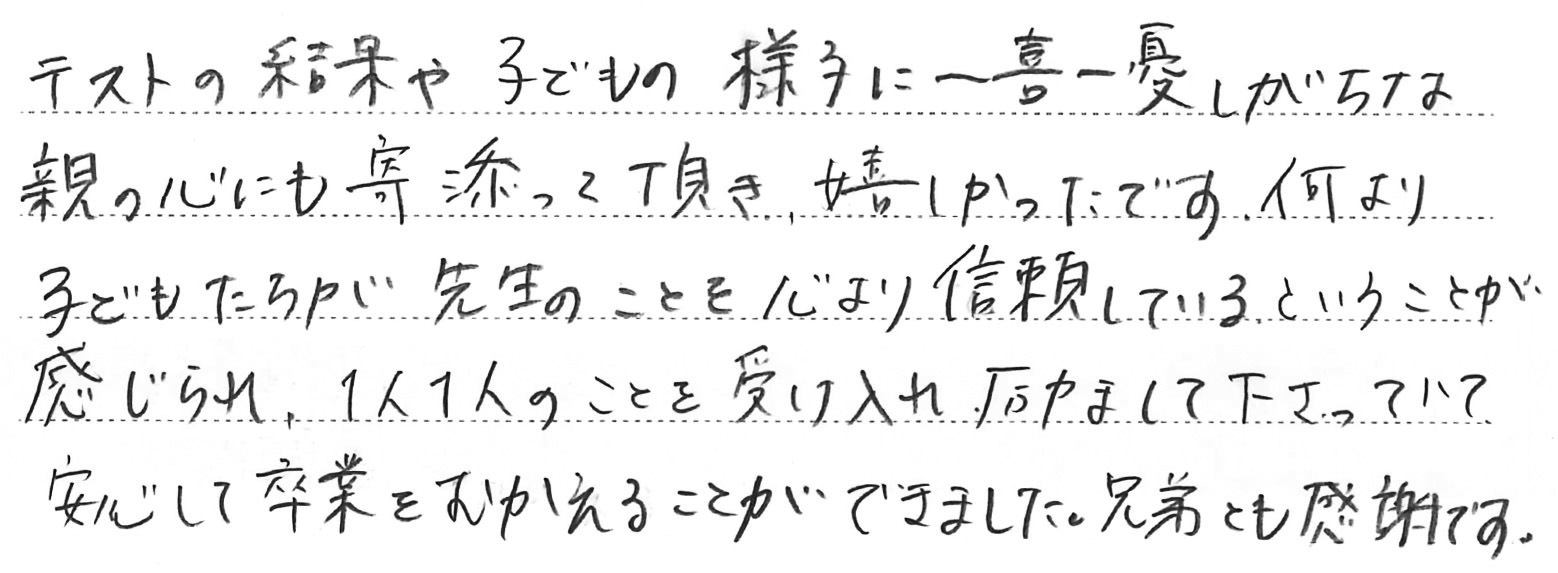 テストの結果や子どもの様子に一喜一憂しがちな
親の心にも寄添って頂き、嬉しかったです。何より
子どもたちが先生のことを心より信頼しているということが
感じられ、1人1人のことを受け入れ励まして下さっていて
安心して卒業をむかえることができました。兄弟とも感謝です。